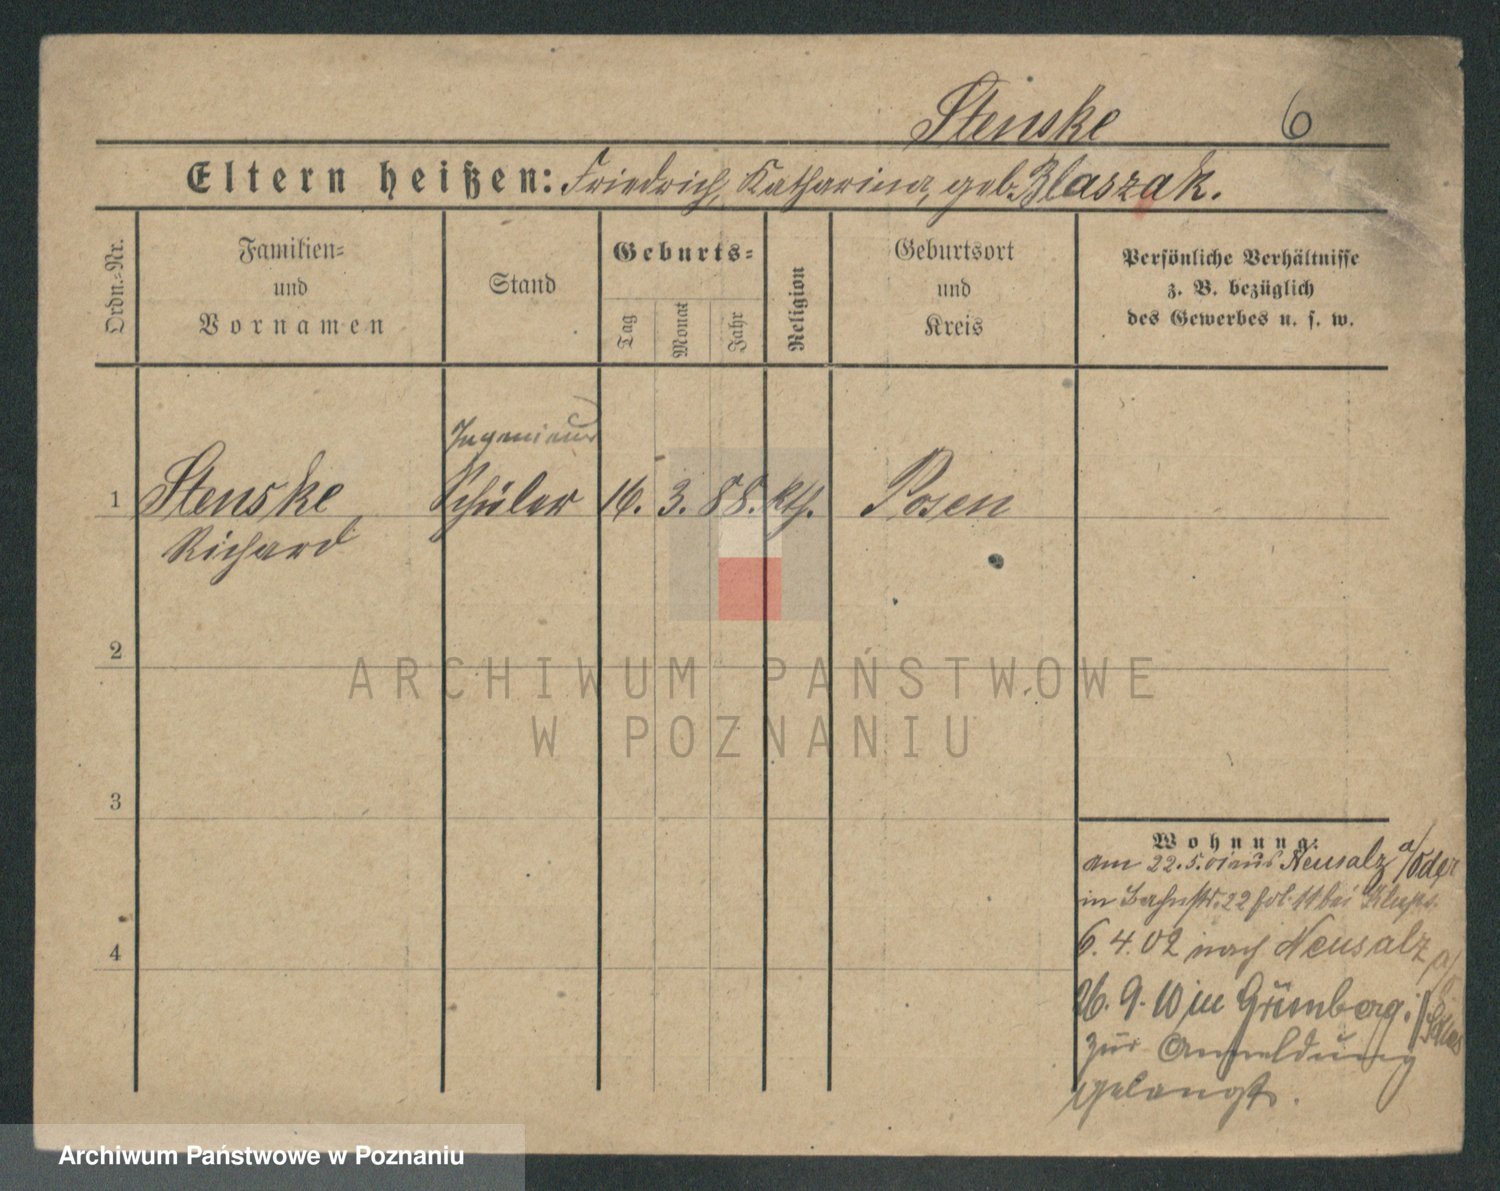 Stenske 6
Eltern heißen: Friedrich, Katharina, geb. Blaszak.
Ordn.-Nr.
Familien-
und
Vornamen
Stand
Geburts-
Tag
Monat
Jahr
Religion
Geburtsort
und
Kreis
Persönliche Verhältnisse
z. B. bezüglich
des Gewerbes u. s. w.
Ingenieur
1 Stenske Schüler 16. 3. 88. kth. Posen
Richard
2
3
4
Wohnung:
am 22.5.01 aus Neusalz a/Oder
in Bahnstr. 22 bei
6.4.02 nach Neusalz a/
26.9.10 in Grünberg i/Schles
zur Anmeldung
gelangt.
ARCHIWUM PAŃSTWOWE
W POZNANIU
Archiwum Państwowe w Poznaniu